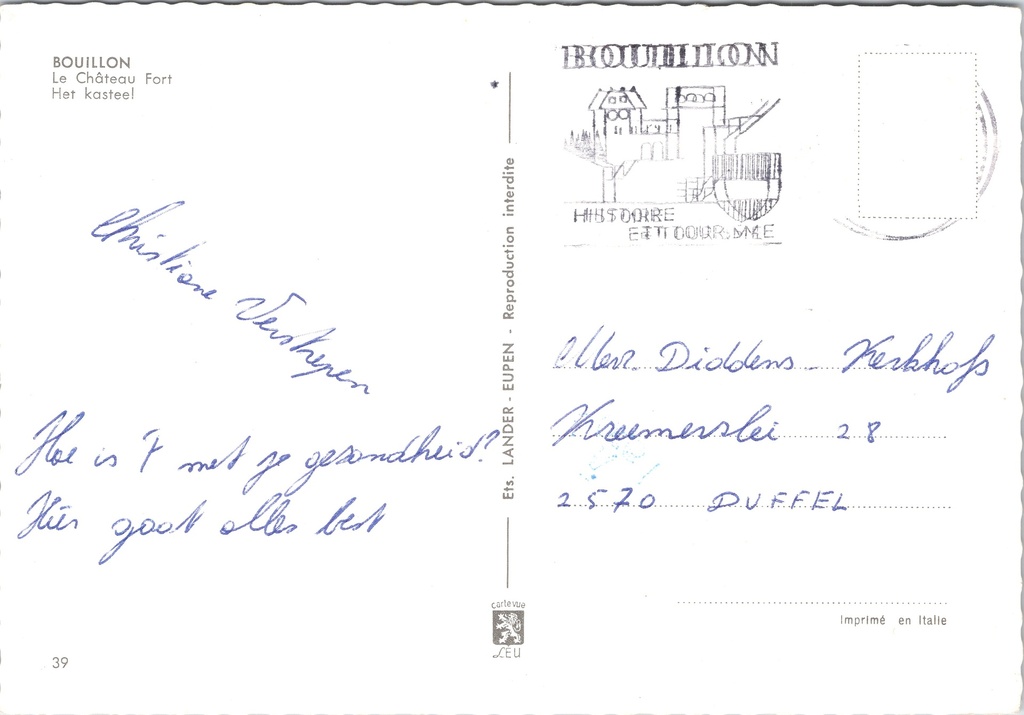 BOUILLON
Le Château Fort
Het kasteel
Christiane Verstrepen
Hoe is 't met je gezondheid?
Hier gaat alles best
39
Ets. LANDER - EUPEN - Reproduction interdite
carte vue
LEU
BOUILLON
HISTOIRE
ET TOURISME
Mevr. Diddens - Kerkhofs
Kreemerslei 28
2570 DUFFEL
Imprimé en Italie